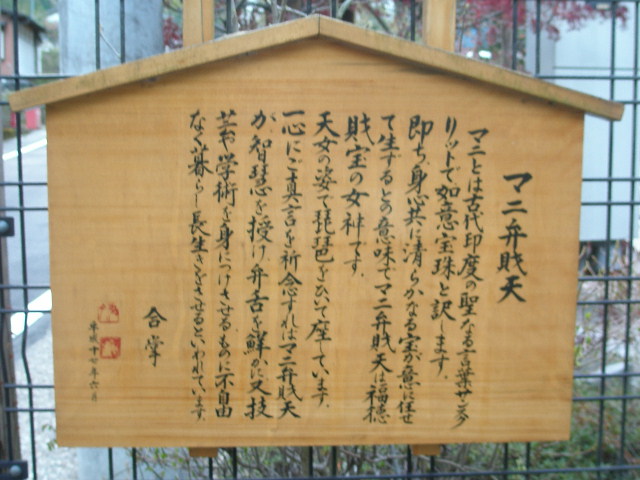 マニ弁財天
マニとは古代印度の聖なる言葉サンスク
リットで如意宝珠と訳します。
即ち身心共に清らかなる宝が意に任せ
て生ずるとの意味でマニ弁財天は福徳
財宝の女神です。
天女の姿で琵琶をひいて座しています。
一心にご真言を祈念すればマニ弁財天
が智慧を授け弁舌を鮮かに又技
芸や学術を身につけさせるものに不自由
なく暮らし長生きをさせるといわれています。
合掌
平成十七年六月